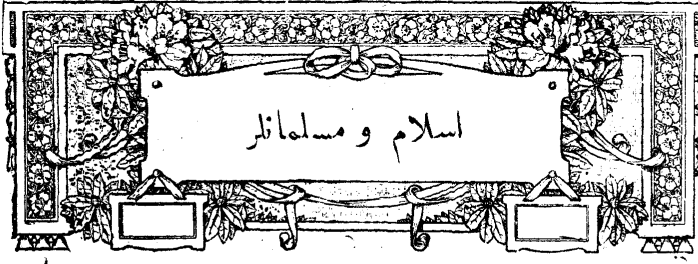 اسلام و مسلمانلر